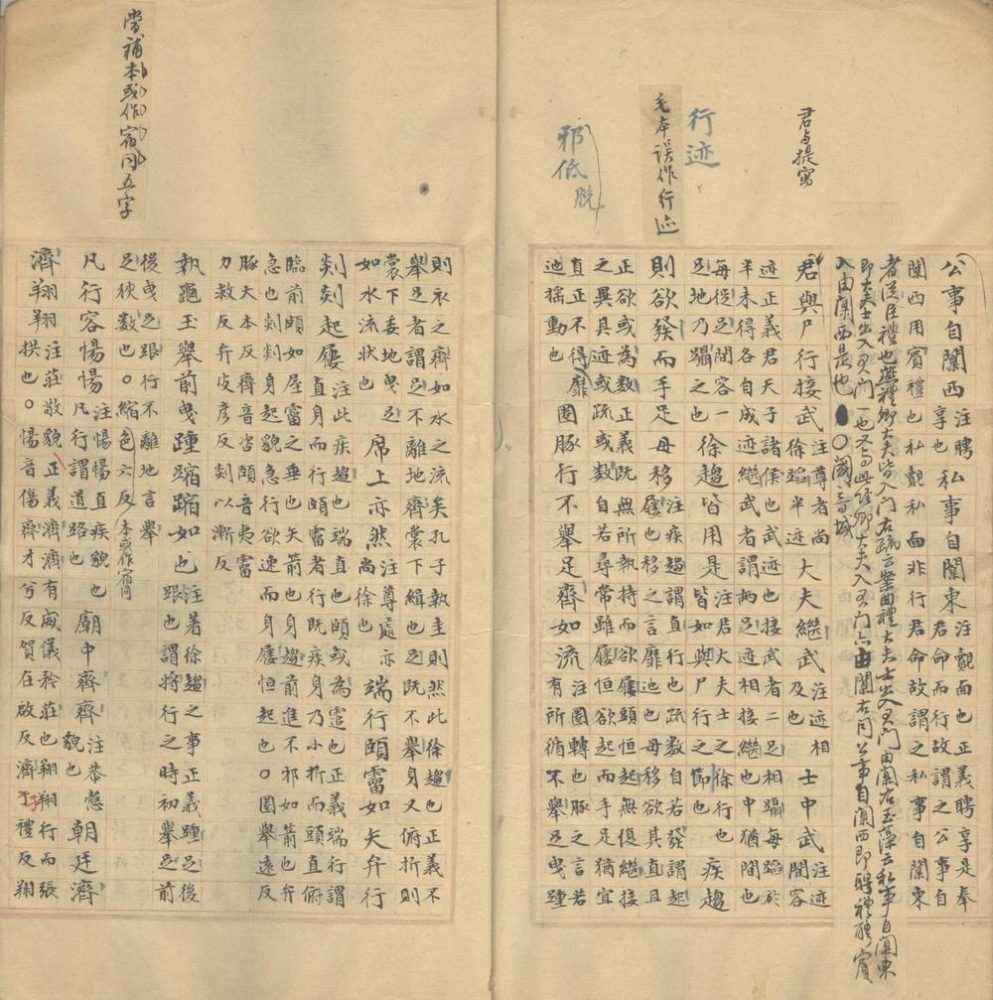 君与提寫
行迹
毛本误作行迹
邪低脫
公事自闑西注聘享也私事自闑東注覿面也正義聘享是奉君命而行故謂之公事自
闑西用賓禮也私覿私面非行君命故謂之私事自闑東
者從臣禮也無禮卿大夫皆入門右疏云案曲禮大夫士出入君門由闑右玉藻云私事自闑東
即大夫士出入君門一也不言此經卿大夫入君門亦由闑右同公事自闑西即聘禮聘賓
入由闑西是也〇闑音域
君與尸行接武注尊者尚徐蹈半迹大夫繼武注迹相及也士中武注迹間容
迹正義君天子諸侯也武迹也接武者二足相躡每蹈於
半未得各自成迹繼武者謂兩足迹相接繼也中猶間也
每徙足間容一足地乃躡之也徐趨皆用是注君大夫士之徐行也皆如與尸行之節也疾趨
則欲發而手足毋移注疾趨謂直行也疏數自若發謂起屨也移之言靡迆也毋移欲其直且
正欲或為數正義既無所執持而欲屨頭恒起無復繼接
之異其迹或疏或數自若尋常雖屨恒欲起而手足猶宜
直正不得靡迆搖動也圈豚行不舉足齊如流注圈轉也豚之言若有所循不舉足曳踵
當補本或作宿同五字
則衣之齊如水之流矣孔子執圭則然此徐趨也正義不
舉足者謂足不離地齊裳下緝也足既不舉身又俯折則
裳下委地曳足如水流狀也席上亦然注尊處亦尚徐也端行頤霤如矢弁行
剡剡起屨注此疾趨也端直也頤或為霆也正義端行謂直身而行頤霤者行既疾身乃小折而頭直俯
臨前頤如屋霤之垂也矢箭也身趨前進不邪如箭也弁
急也剡剡身起貌急行欲速而身屨恒起也〇圈舉遠反
豚大本反齊音咨頤音夷霤
力救反弁皮彥反剡以漸反
執龜玉舉前曳踵蹜蹜如也注著徐趨之事正義踵足後跟也謂將行之時初舉足前
後曳足跟行不離地言舉
足狹數也〇縮色六反本或作宿同
凡行容惕惕注惕惕直疾貌也凡行謂道路也廟中齊齊注恭愨貌也朝廷濟
濟翔翔注莊敬貌正義濟濟有威儀矜莊也翔翔行而張拱也〇惕音傷齊才兮反賀在啟反濟子禮反翔